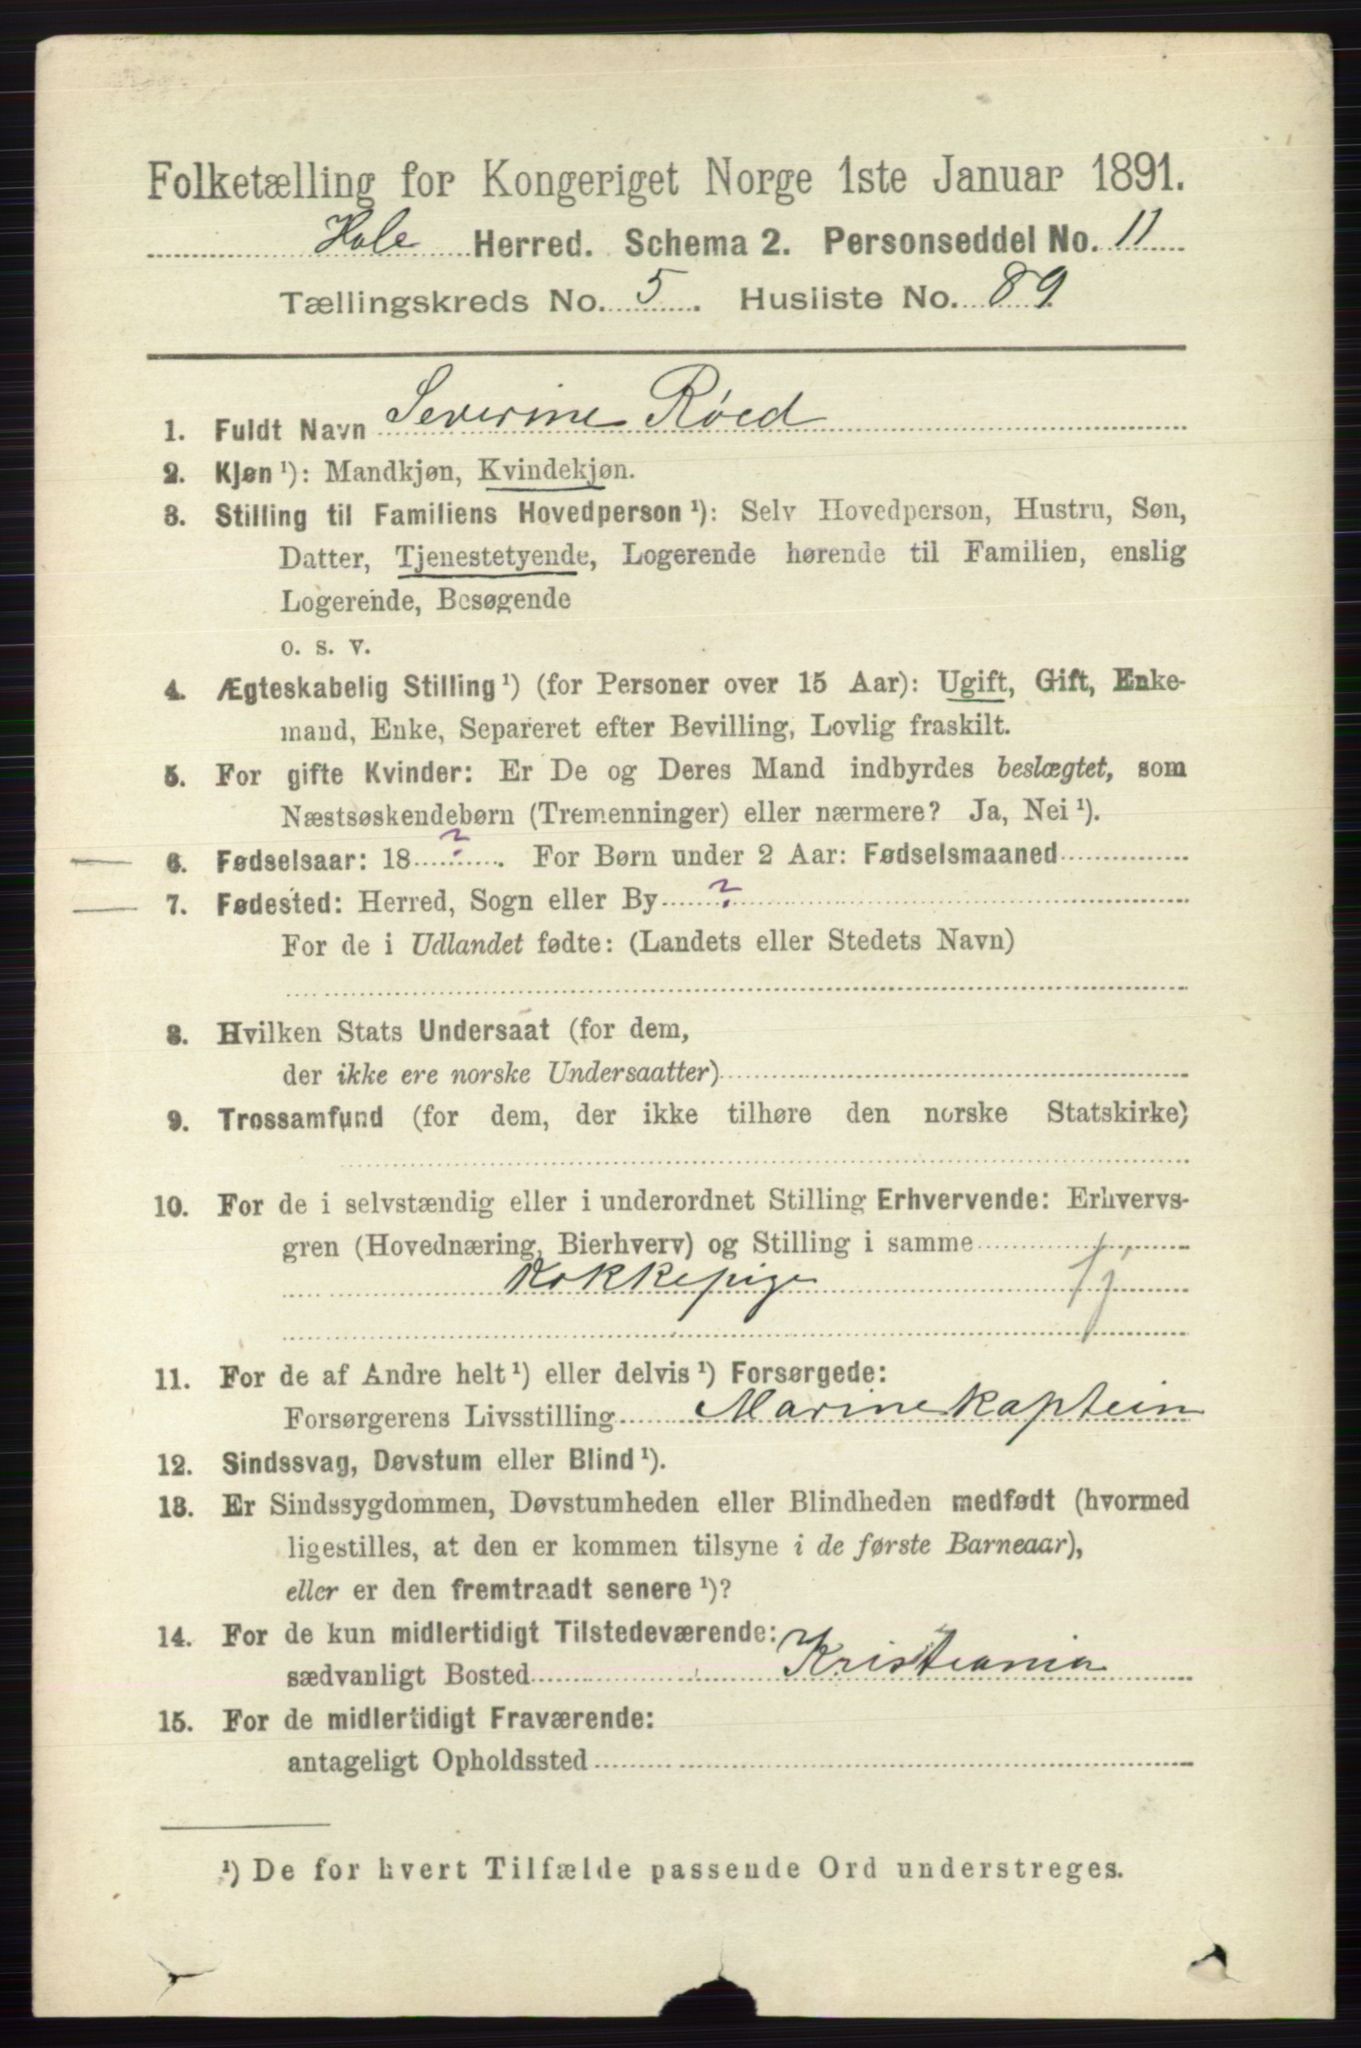 Folketælling for Kongeriget Norge 1ste Januar 1891.
Hole Herred. Schema 2. Personseddel No. 11
Tællingskreds No. 5. Husliste No. 89
1. Fuldt Navn Severine Röed
2. Kjøn ¹): Mandkjøn, Kvindekjøn.
3. Stilling til Familiens Hovedperson ¹): Selv Hovedperson, Hustru, Søn,
Datter, Tjenestetyende, Logerende hørende til Familien, enslig
Logerende, Besøgende
o. s. v.
4. Ægteskabelig Stilling ¹) (for Personer over 15 Aar): Ugift, Gift, Enke-
mand, Enke, Separeret efter Bevilling, Lovlig fraskilt.
5. For gifte Kvinder: Er De og Deres Mand indbyrdes beslægtet, som
Næstsøskendebørn (Tremenninger) eller nærmere? Ja, Nei ¹).
6. Fødselsaar: 18 ? . For Børn under 2 Aar: Fødselsmaaned
7. Fødested: Herred, Sogn eller By ?
For de i Udlandet fødte: (Landets eller Stedets Navn)
8. Hvilken Stats Undersaat (for dem,
der ikke ere norske Undersaatter)
9. Trossamfund (for dem, der ikke tilhøre den norske Statskirke)
10. For de i selvstændig eller i underordnet Stilling Erhvervende: Erhvervs-
gren (Hovednæring, Bierhverv) og Stilling i samme
Kokkepige tj
11. For de af Andre helt ¹) eller delvis ¹) Forsørgede:
Forsørgerens Livsstilling Marinekaptein
12. Sindssvag, Døvstum eller Blind ¹).
13. Er Sindssygdommen, Døvstumheden eller Blindheden medfødt (hvormed
ligestilles, at den er kommen tilsyne i de første Barneaar),
eller er den fremtraadt senere ¹)?
14. For de kun midlertidigt Tilstedeværende:
sædvanligt Bosted Kristiania
15. For de midlertidigt Fraværende:
antageligt Opholdssted
¹) De for hvert Tilfælde passende Ord understreges.